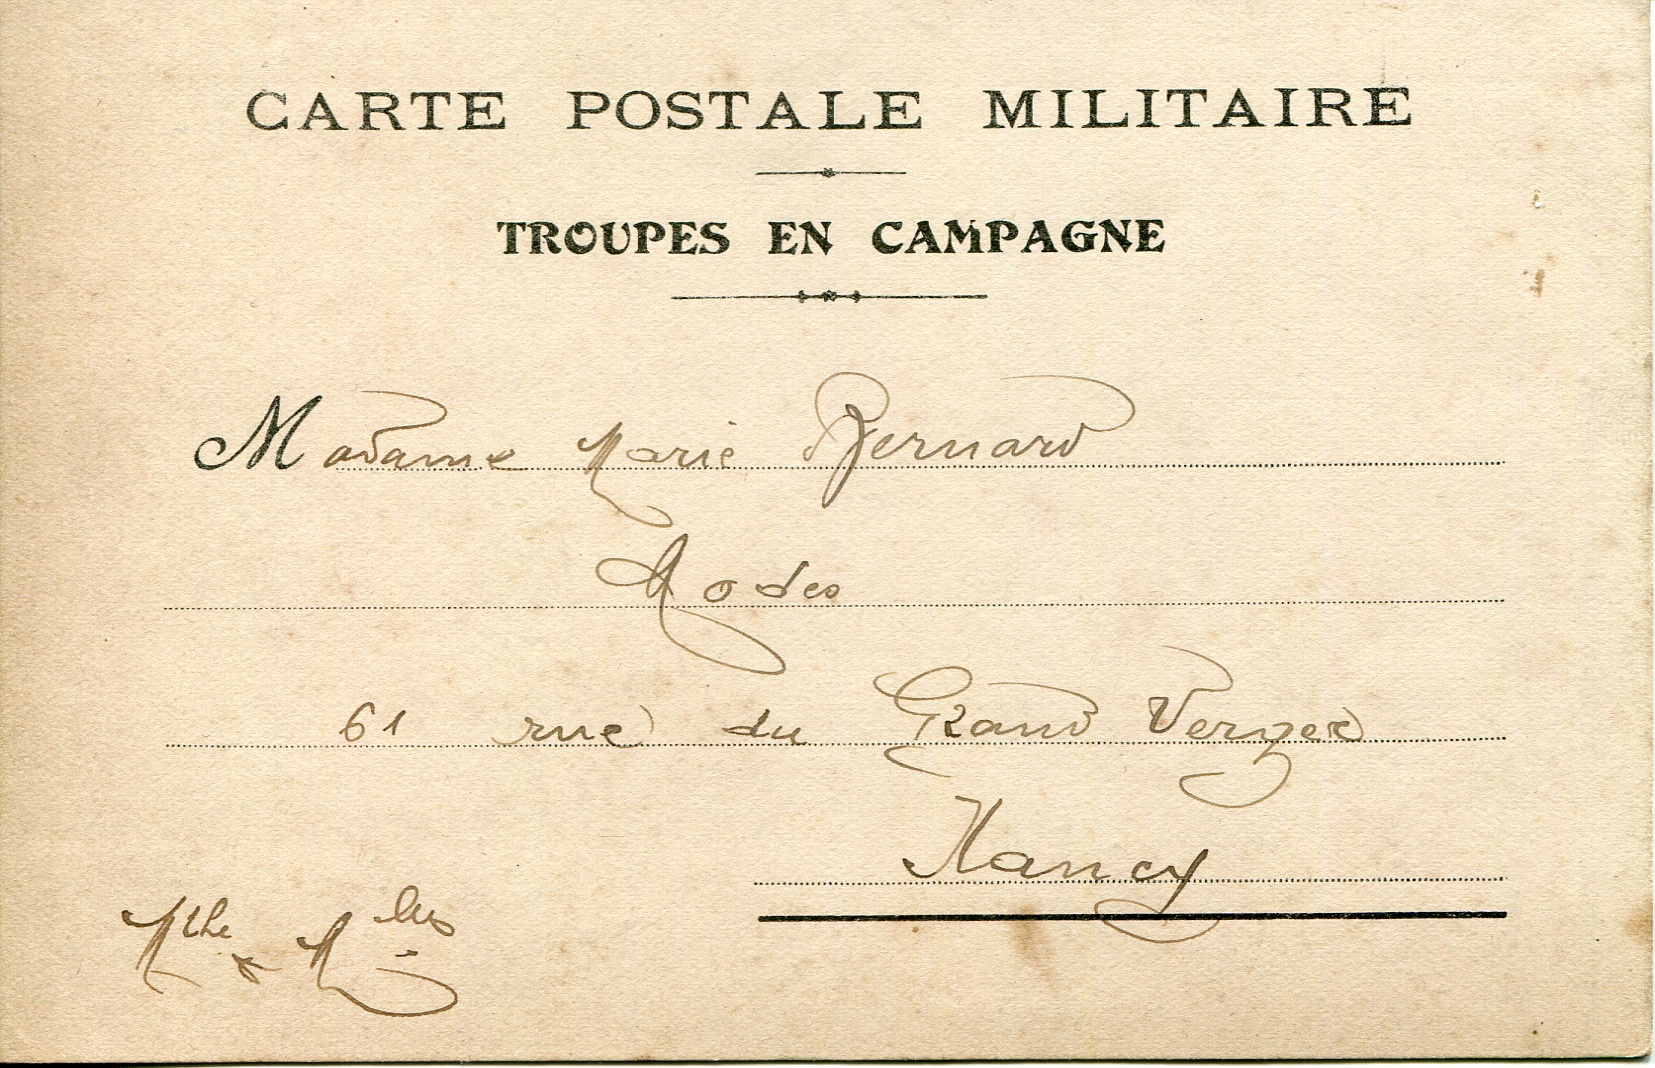 CARTE POSTALE MILITAIRE
TROUPES EN CAMPAGNE
Madame Marie Bernard
Modes
61 rue du Grand Verger
Nancy
Mthe & M